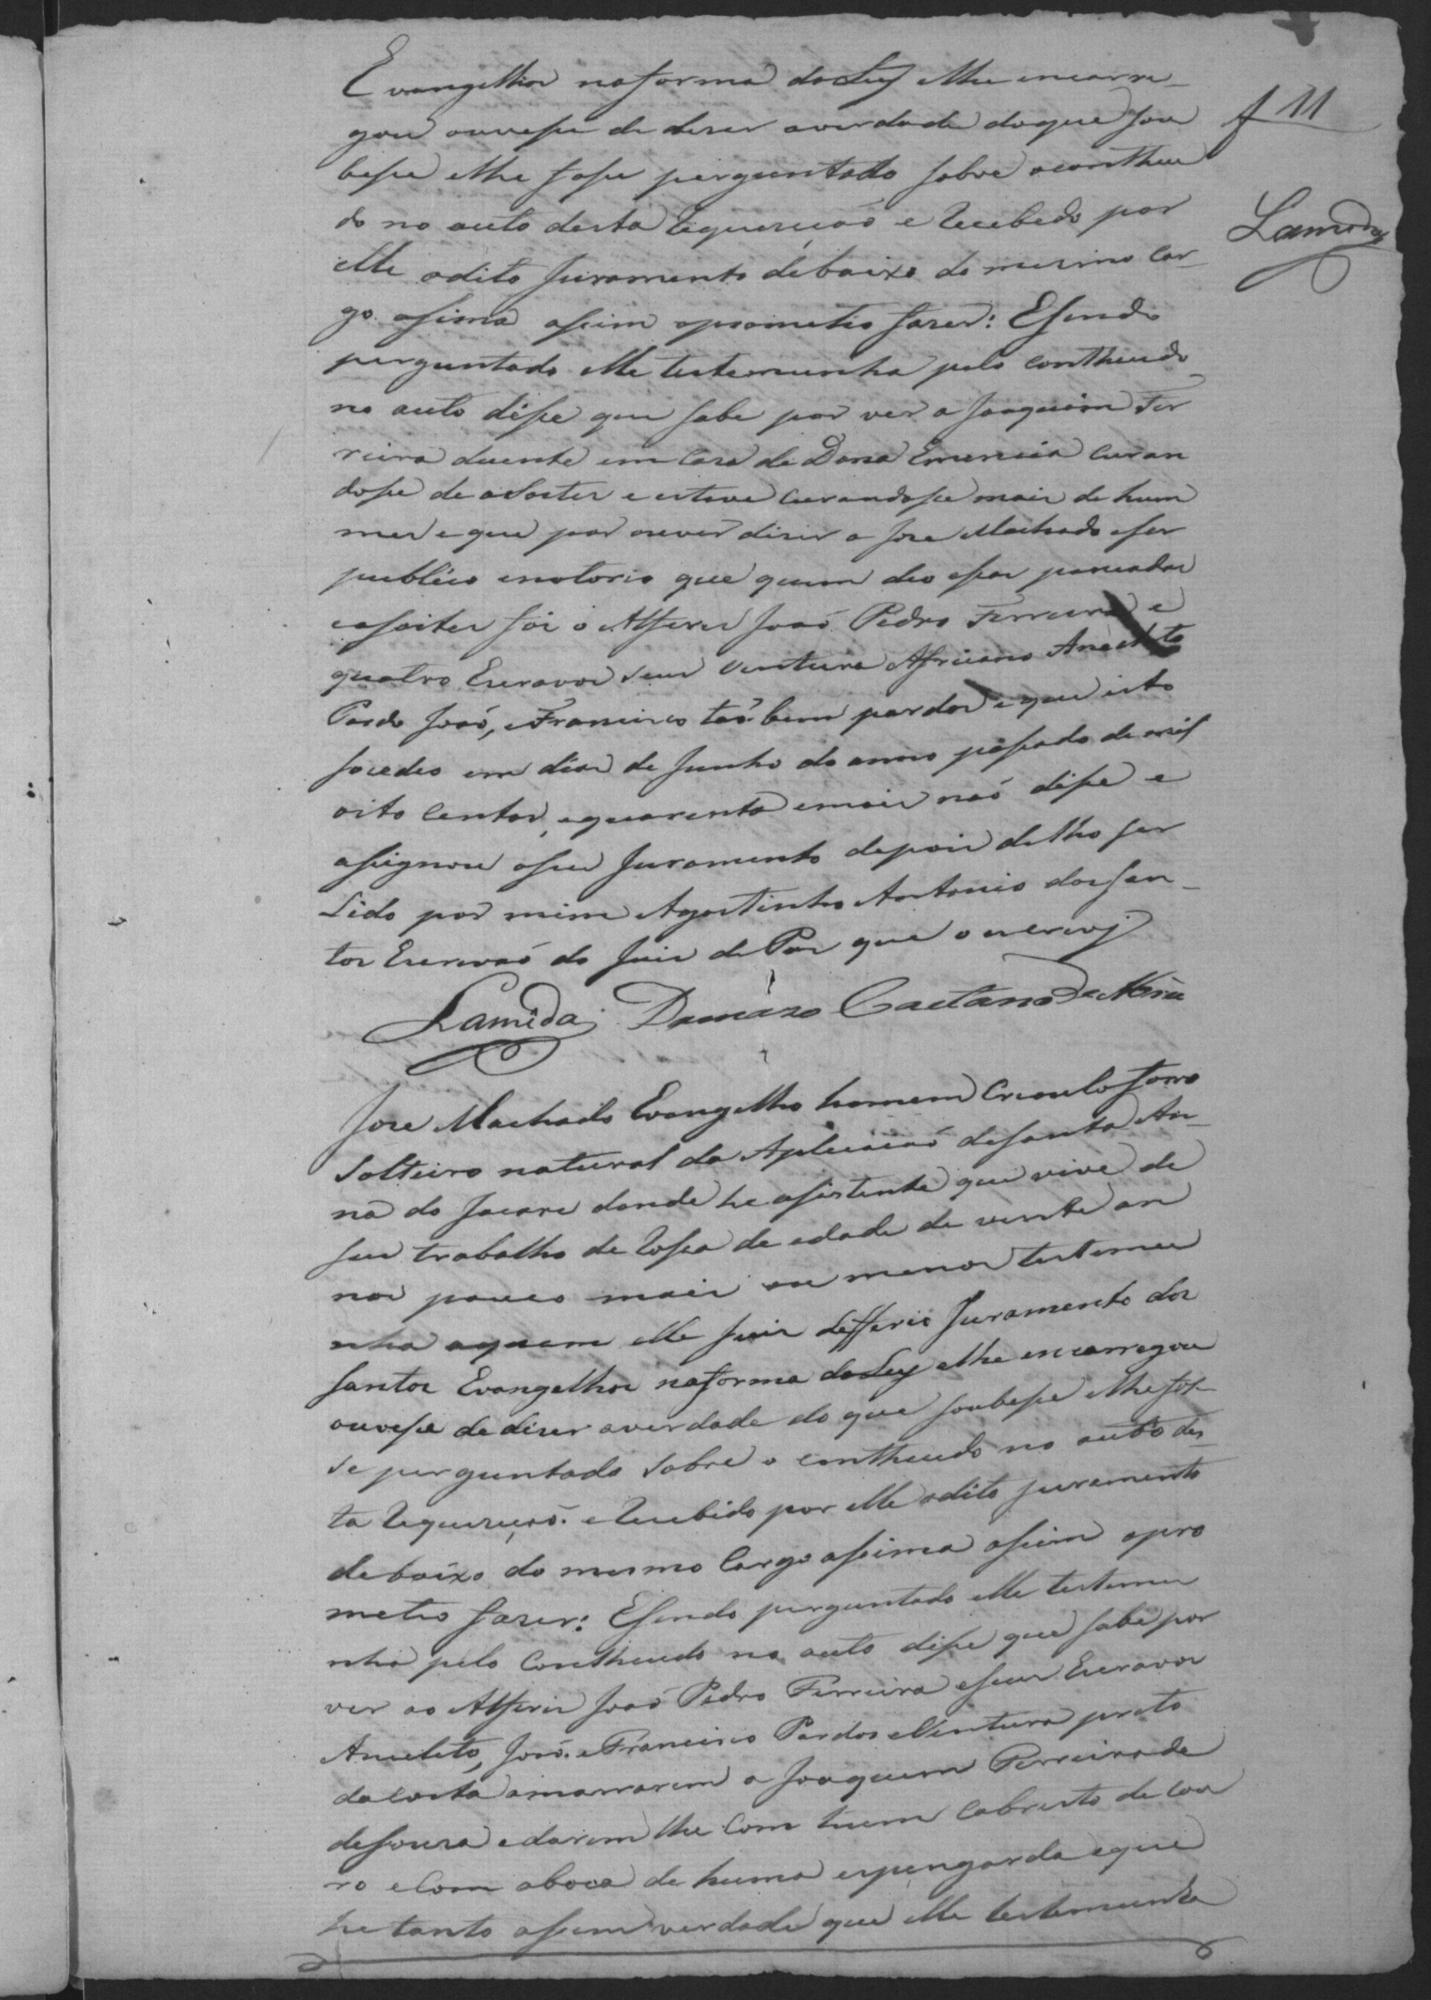 Evangelhos naforma daLey elhe encarre-
gou ouvese de diser averdade doque sou
f 11
bese elhe fose perguntado sobre ocontheu
do no auto desta Requisicaõ e Recebedo por
Lameda
elle odito Juramento debaixo do mesmo Car-
go asima asim oprometio faser: Esendo
perguntado elle testemunha pelo contheudo
no auto dise que sabe por ver a Joaquim Fer
reira duente em Casa de Dona Emerencia Curan
dose de asoites e esteve Curandose mais de hum
mes e que por ouver diser a Jose Machado eser
publico enotorio que quem deo esas pancadas
easoites foi o Alferes Joaõ Pedro Ferreira e
quatro Escravos seus Ventura Africano Anacleto
Pardo Joaõ, eFrancisco taõ bem pardos e que isto
socedeo em dias de Junho do anno pasado de mil
oito Centos, equarenta emais naõ dise e
asignou oseu Juramento depois delho ser
Lido por mim Agostinho Antonio dosSan-
tos Escrivaõ do Juis de Pas que o escrevj
Lameda Damazo Caetano de
Jose Machado Evangelho homem Crioulo forro
Solteiro natural da Aplicacaõ deSanta An-
na do Jacare donde he asistente que vive de
seu trabalho de Rosa de edade de vinte an
nos pouco mais ou menos testemu
nha aquem elle Juis defferio Juramento dos
Santos Evangelhos naforma daLey elhe encarregou
ouvese dediser averdade do que soubese elhefos-
se perguntado sobre o contheudo no auto des-
ta Requisicaõ. e Recebido por elle odito juramento
debaixo do mesmo Cargo assima asim opro
meteo faser: Esendo perguntado elle testemu
nha pelo Contheudo no auto dise que sabe por
ver ao Alferes Joaõ Pedro Ferreira eseus Escravos
Anacleto, Joaõ. eFrancisco Pardos eVentura preto
daCosta amarrarem a Joaquim Ferreirade
deSousa edarem lhe Com hum Cabresto de Cou
ro eCom aboca de huma espengarda eque
he tanto asim verdade que elle testemunha